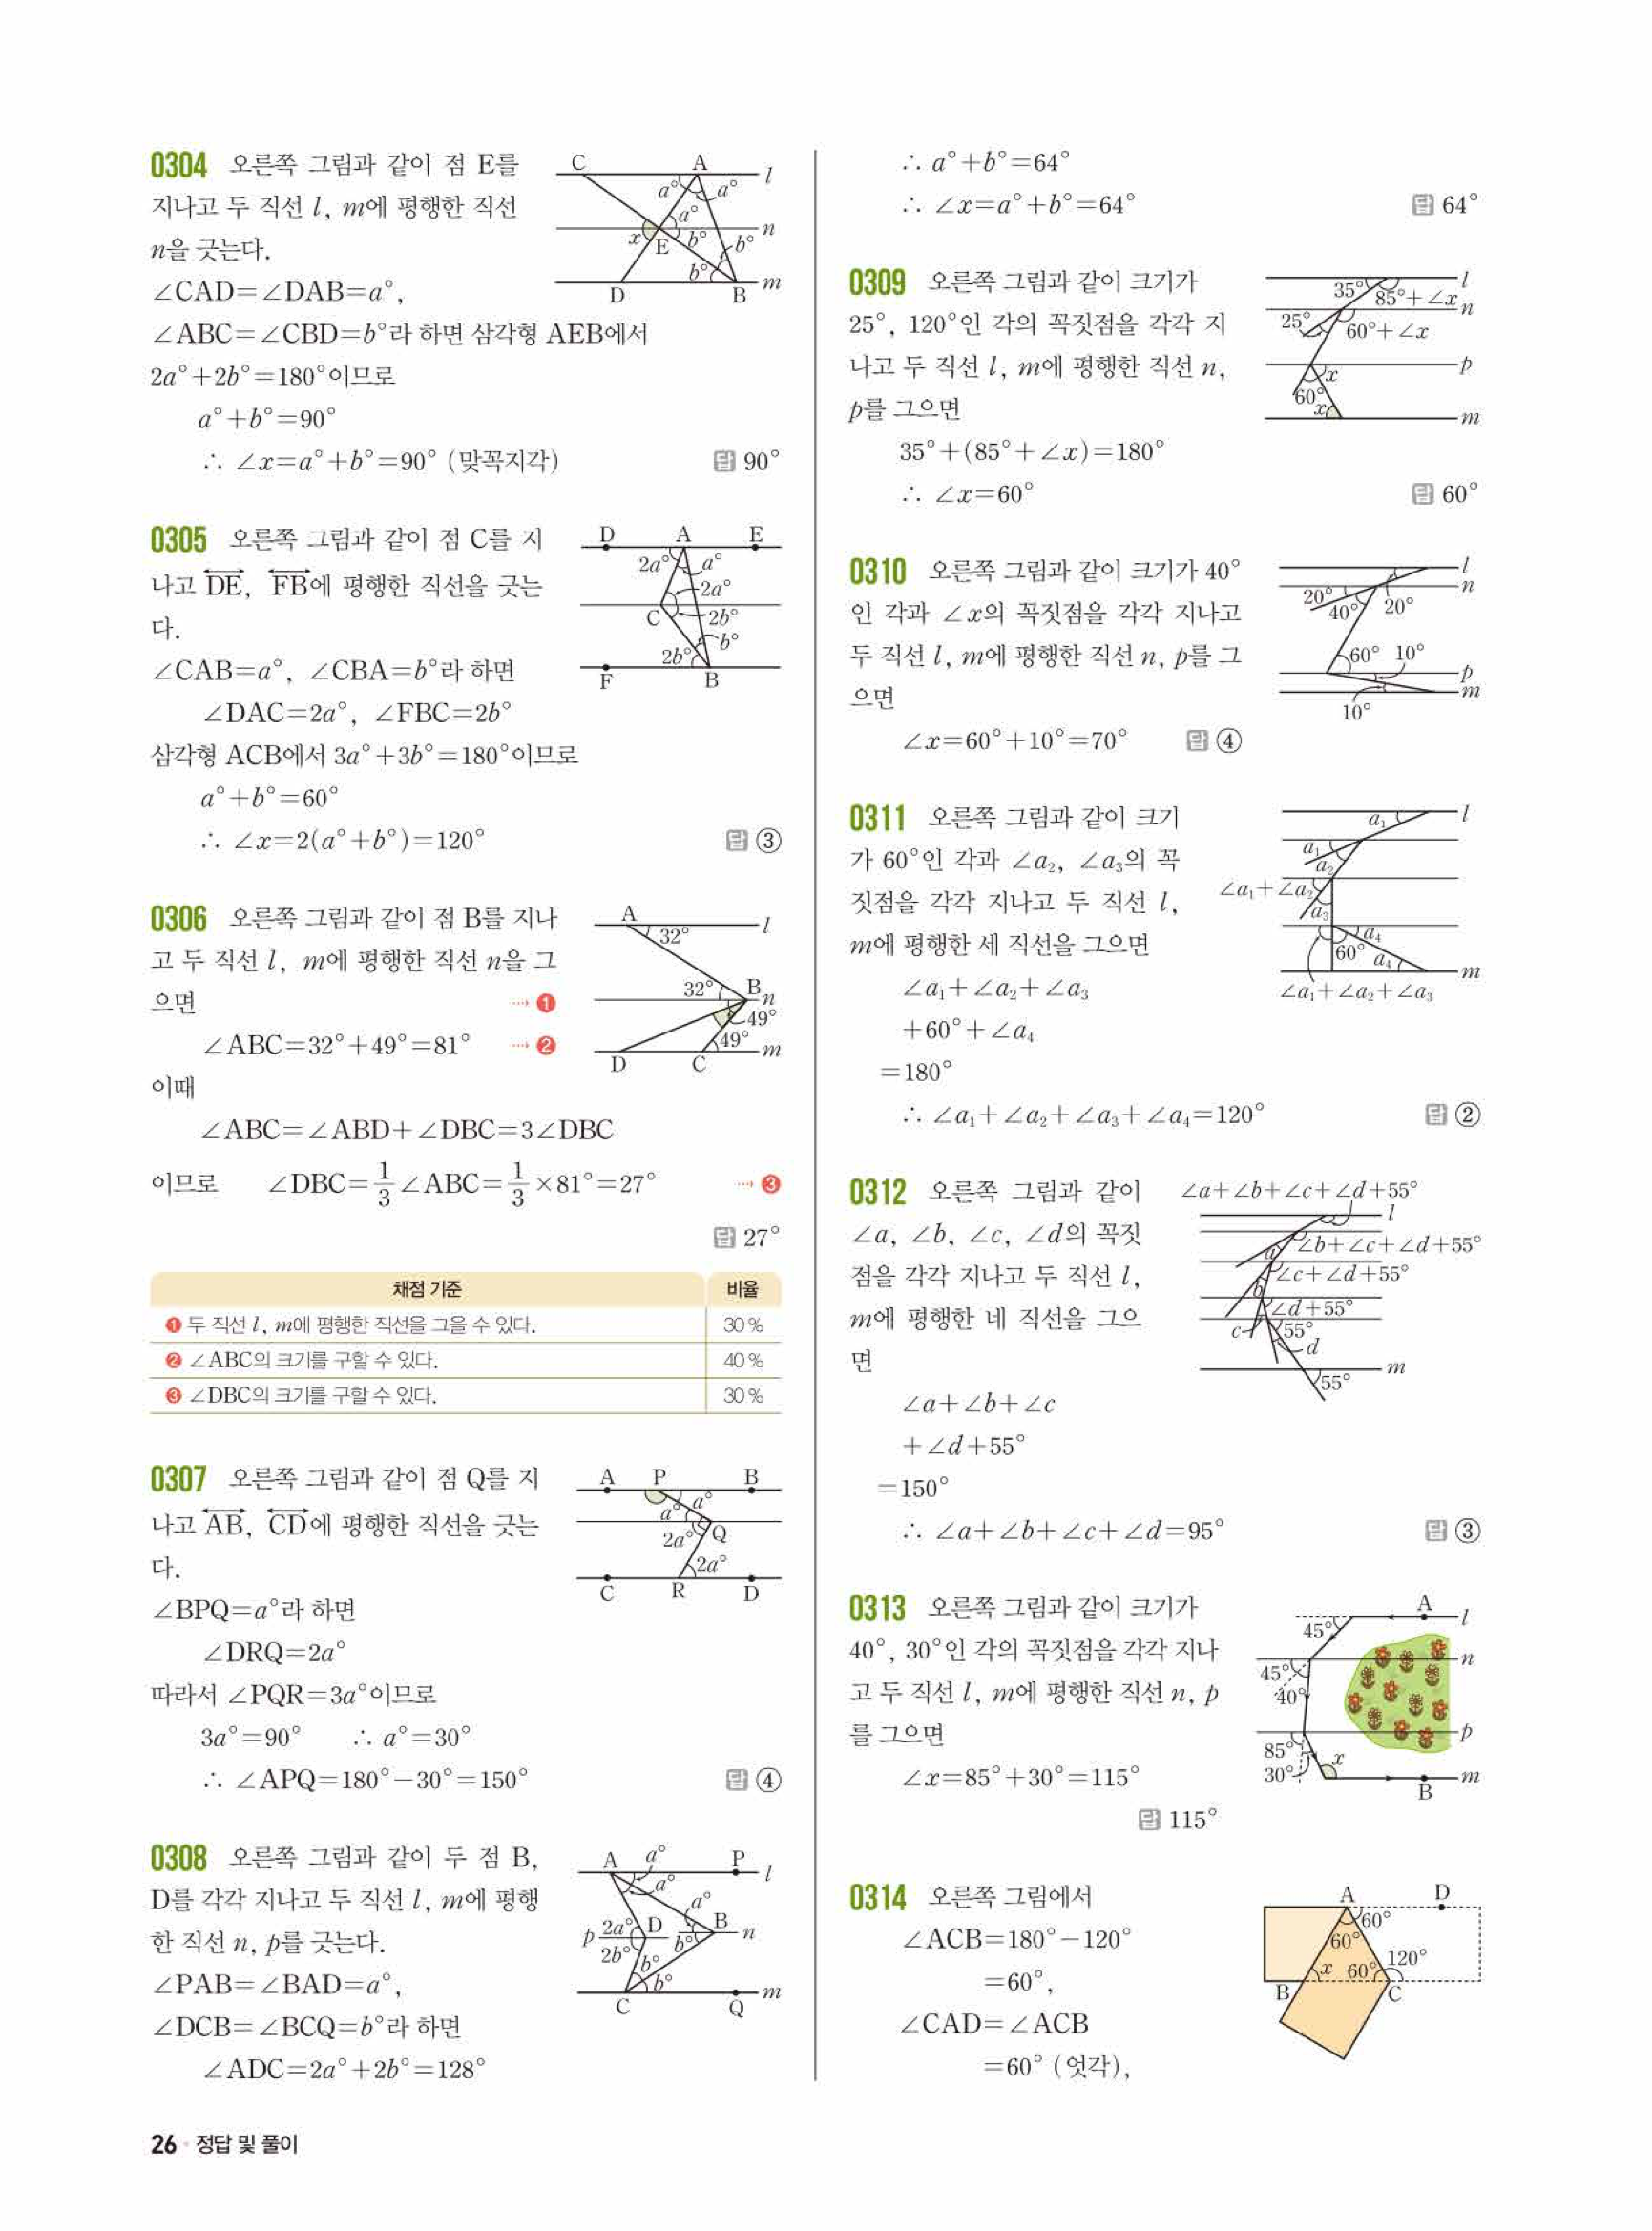 0304 오른쪽 그림과 같이 점 E를
지나고 두 직선 l, m에 평행한 직선
n을 긋는다.
∠CAD=∠DAB=a°,
∠ABC=∠CBD=b°라 하면 삼각형 AEB에서
2a°+2b°=180°이므로
a°+b°=90°
∴ ∠x=a°+b°=90° (맞꼭지각)
답 90°
C A l
a° a°
a°
x E b° b° n
b°
D B m
0305 오른쪽 그림과 같이 점 C를 지
나고 DE, FB에 평행한 직선을 긋는
다.
∠CAB=a°, ∠CBA=b°라 하면
∠DAC=2a°, ∠FBC=2b°
삼각형 ACB에서 3a°+3b°=180°이므로
a°+b°=60°
∴ ∠x=2(a°+b°)=120°
답 ③
D A E
2a° a°
2a°
C 2b°
b°
2b°
F B
0306 오른쪽 그림과 같이 점 B를 지나
고 두 직선 l, m에 평행한 직선 n을 그
으면 ···· ❶
∠ABC=32°+49°=81° ···· ❷
이때
∠ABC=∠ABD+∠DBC=3∠DBC
이므로 ∠DBC=1/3∠ABC=1/3×81°=27° ···· ❸
답 27°
A l
32°
32° B n
49°
49° m
D C
채점 기준 비율
❶ 두 직선 l, m에 평행한 직선을 그을 수 있다. 30 %
❷ ∠ABC의 크기를 구할 수 있다. 40 %
❸ ∠DBC의 크기를 구할 수 있다. 30 %
0307 오른쪽 그림과 같이 점 Q를 지
나고 AB, CD에 평행한 직선을 긋는
다.
∠BPQ=a°라 하면
∠DRQ=2a°
따라서 ∠PQR=3a°이므로
3a°=90° ∴ a°=30°
∴ ∠APQ=180°-30°=150°
답 ④
A P B
a°
a°
2a° Q
2a°
C R D
0308 오른쪽 그림과 같이 두 점 B,
D를 각각 지나고 두 직선 l, m에 평행
한 직선 n, p를 긋는다.
∠PAB=∠BAD=a°,
∠DCB=∠BCQ=b°라 하면
∠ADC=2a°+2b°=128°
A a° P l
a°
a°
p 2a° D B n
2b° b° b°
b°
C Q m
∴ a°+b°=64°
∴ ∠x=a°+b°=64°
답 64°
0309 오른쪽 그림과 같이 크기가
25°, 120°인 각의 꼭짓점을 각각 지
나고 두 직선 l, m에 평행한 직선 n,
p를 그으면
35°+(85°+∠x)=180°
∴ ∠x=60°
답 60°
l
35° 85°+∠x n
25° 60°+∠x
p
x
60°
x m
0310 오른쪽 그림과 같이 크기가 40°
인 각과 ∠x의 꼭짓점을 각각 지나고
두 직선 l, m에 평행한 직선 n, p를 그
으면
∠x=60°+10°=70° 답 ④
l
n
20° 20°
40°
60° 10°
p
m
10°
0311 오른쪽 그림과 같이 크기
가 60°인 각과 ∠a₂, ∠a₃의 꼭
짓점을 각각 지나고 두 직선 l,
m에 평행한 세 직선을 그으면
∠a₁+∠a₂+∠a₃
+60°+∠a₄
=180°
∴ ∠a₁+∠a₂+∠a₃+∠a₄=120°
답 ②
a₁ l
a₁
a₂
∠a₁+∠a₂
a₃
a₄
60° a₄ m
∠a₁+∠a₂+∠a₃
0312 오른쪽 그림과 같이
∠a, ∠b, ∠c, ∠d의 꼭짓
점을 각각 지나고 두 직선 l,
m에 평행한 네 직선을 그으
면
∠a+∠b+∠c
+∠d+55°
=150°
∴ ∠a+∠b+∠c+∠d=95°
답 ③
∠a+∠b+∠c+∠d+55°
l
∠b+∠c+∠d+55°
a
∠c+∠d+55°
b
∠d+55°
c 55°
d
m
55°
0313 오른쪽 그림과 같이 크기가
40°, 30°인 각의 꼭짓점을 각각 지나
고 두 직선 l, m에 평행한 직선 n, p
를 그으면
∠x=85°+30°=115°
답 115°
A l
45°
n
45°
40°
p
85° x
30° m
B
0314 오른쪽 그림에서
∠ACB=180°-120°
=60°,
∠CAD=∠ACB
=60° (엇각),
A D
60°
60°
120°
x 60°
B C
26 · 정답 및 풀이